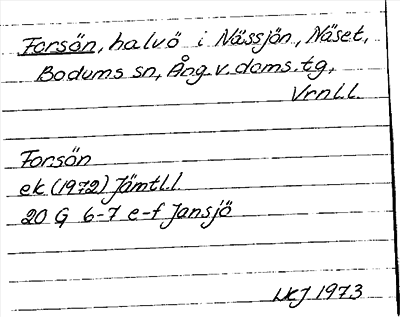 Forsön, halvö i Nässjön, Näset,
Bodums sn, Ång. v. doms. tg,
Vrnl.l.
Forsön
ek. (1972) Jämtl.l
20 G 6-7 e-f Jansjö
1973